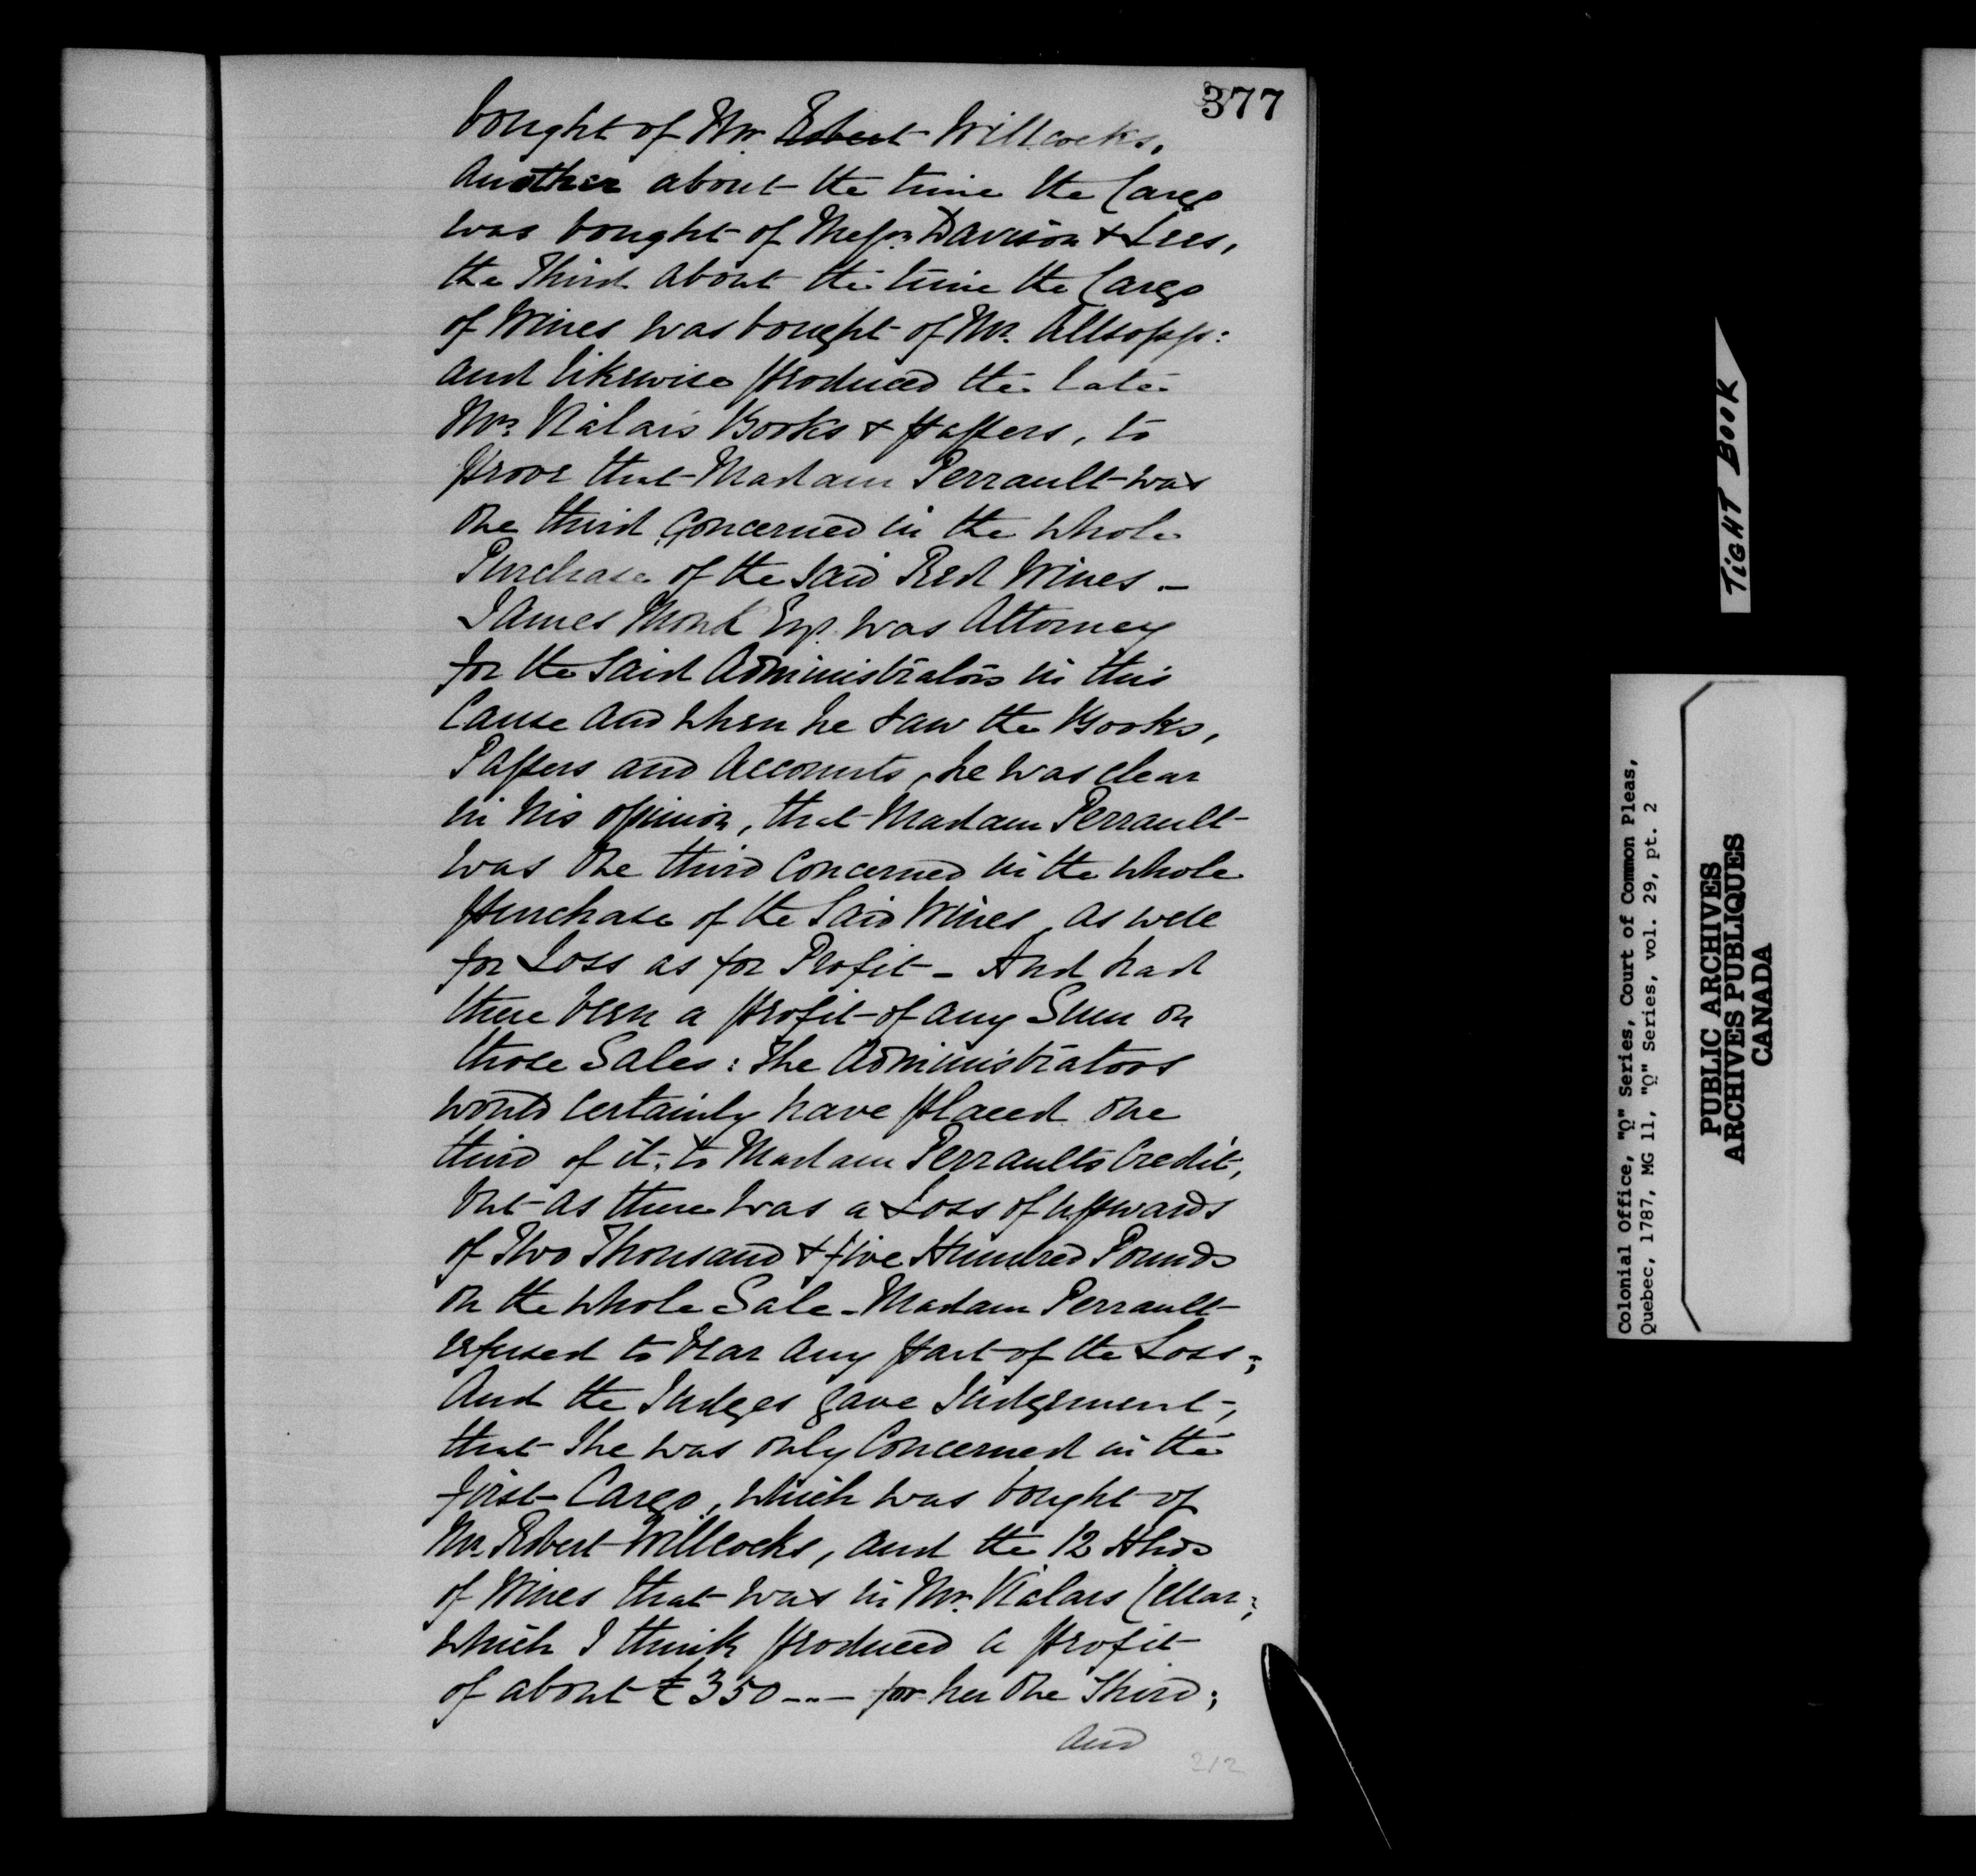 377
bought of Mr. Robert Willcocks,
Another about the time the Cargo
was bought of Messrs. Davison & Lees,
the Third about the time the Cargo
of Wines was bought of Mr. Allsopp:
and likewise produced the late
Mr. Vialars Books & papers, to
prove that Madam Perrault was
One third Concerned in the whole
Purchase of the said Red Wines. —
James Monk Esq. was Attorney
for the said Administrators in this
Cause and when he saw the Books,
Papers and Accounts, he was clear
in his opinion, that Madam Perrault
was One third Concerned in the whole
purchase of the Said Wines, as well
for Loss as for Profit — And had
there been a profit of any Sum on
those Sales: The Administrators
would certainly have placed one
third of it, to Madam Perraults Credit,
but as there was a Loss of upwards
of Two Thousand & five Hundred Pounds
on the whole Sale — Madam Perrault
refused to bear any part of the Loss;
And the Judges gave Judgement,
that She was only Concerned in the
first Cargo, which was bought of
Mr. Robert Willcocks, and the 12 Hhds
of Wines that was in Mr. Vialars Cellar;
which I think produced a profit
of about £350 -..- for her One Third;
and
212
TIGHT BOOK
Colonial Office, "Q" Series, Court of Common Pleas,
Quebec, 1787, MG 11, "Q" Series, vol. 29, pt. 2
PUBLIC ARCHIVES
ARCHIVES PUBLIQUES
CANADA